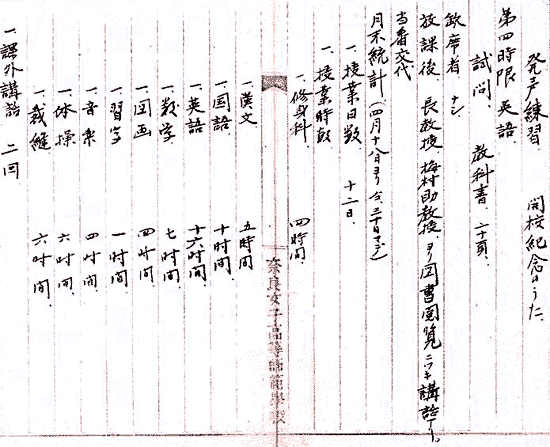 発声練習. 開校紀念のうた.
第四時限 英語.
試問. 教科書 二十頁.
欠席者 ナシ
放課後 長教授 梅村助教授ヨリ図書閲覧ニツキ講話アリ.
当番交代
月末統計 (四月十八日ヨリ 今、三十日マデ)
一、授業日数 十二日.
一、授業時数
一、修身科 四時間
奈良女子高等師範學校
一、漢文 五時間
一、国語 十時間.
一、英語 十六時間.
一、数学 七時間.
一、図画 四時間
一、習字 一時間
一、音楽 四時間.
一、体操 六時間.
一、裁縫 六時間.
一、課外講話 二回